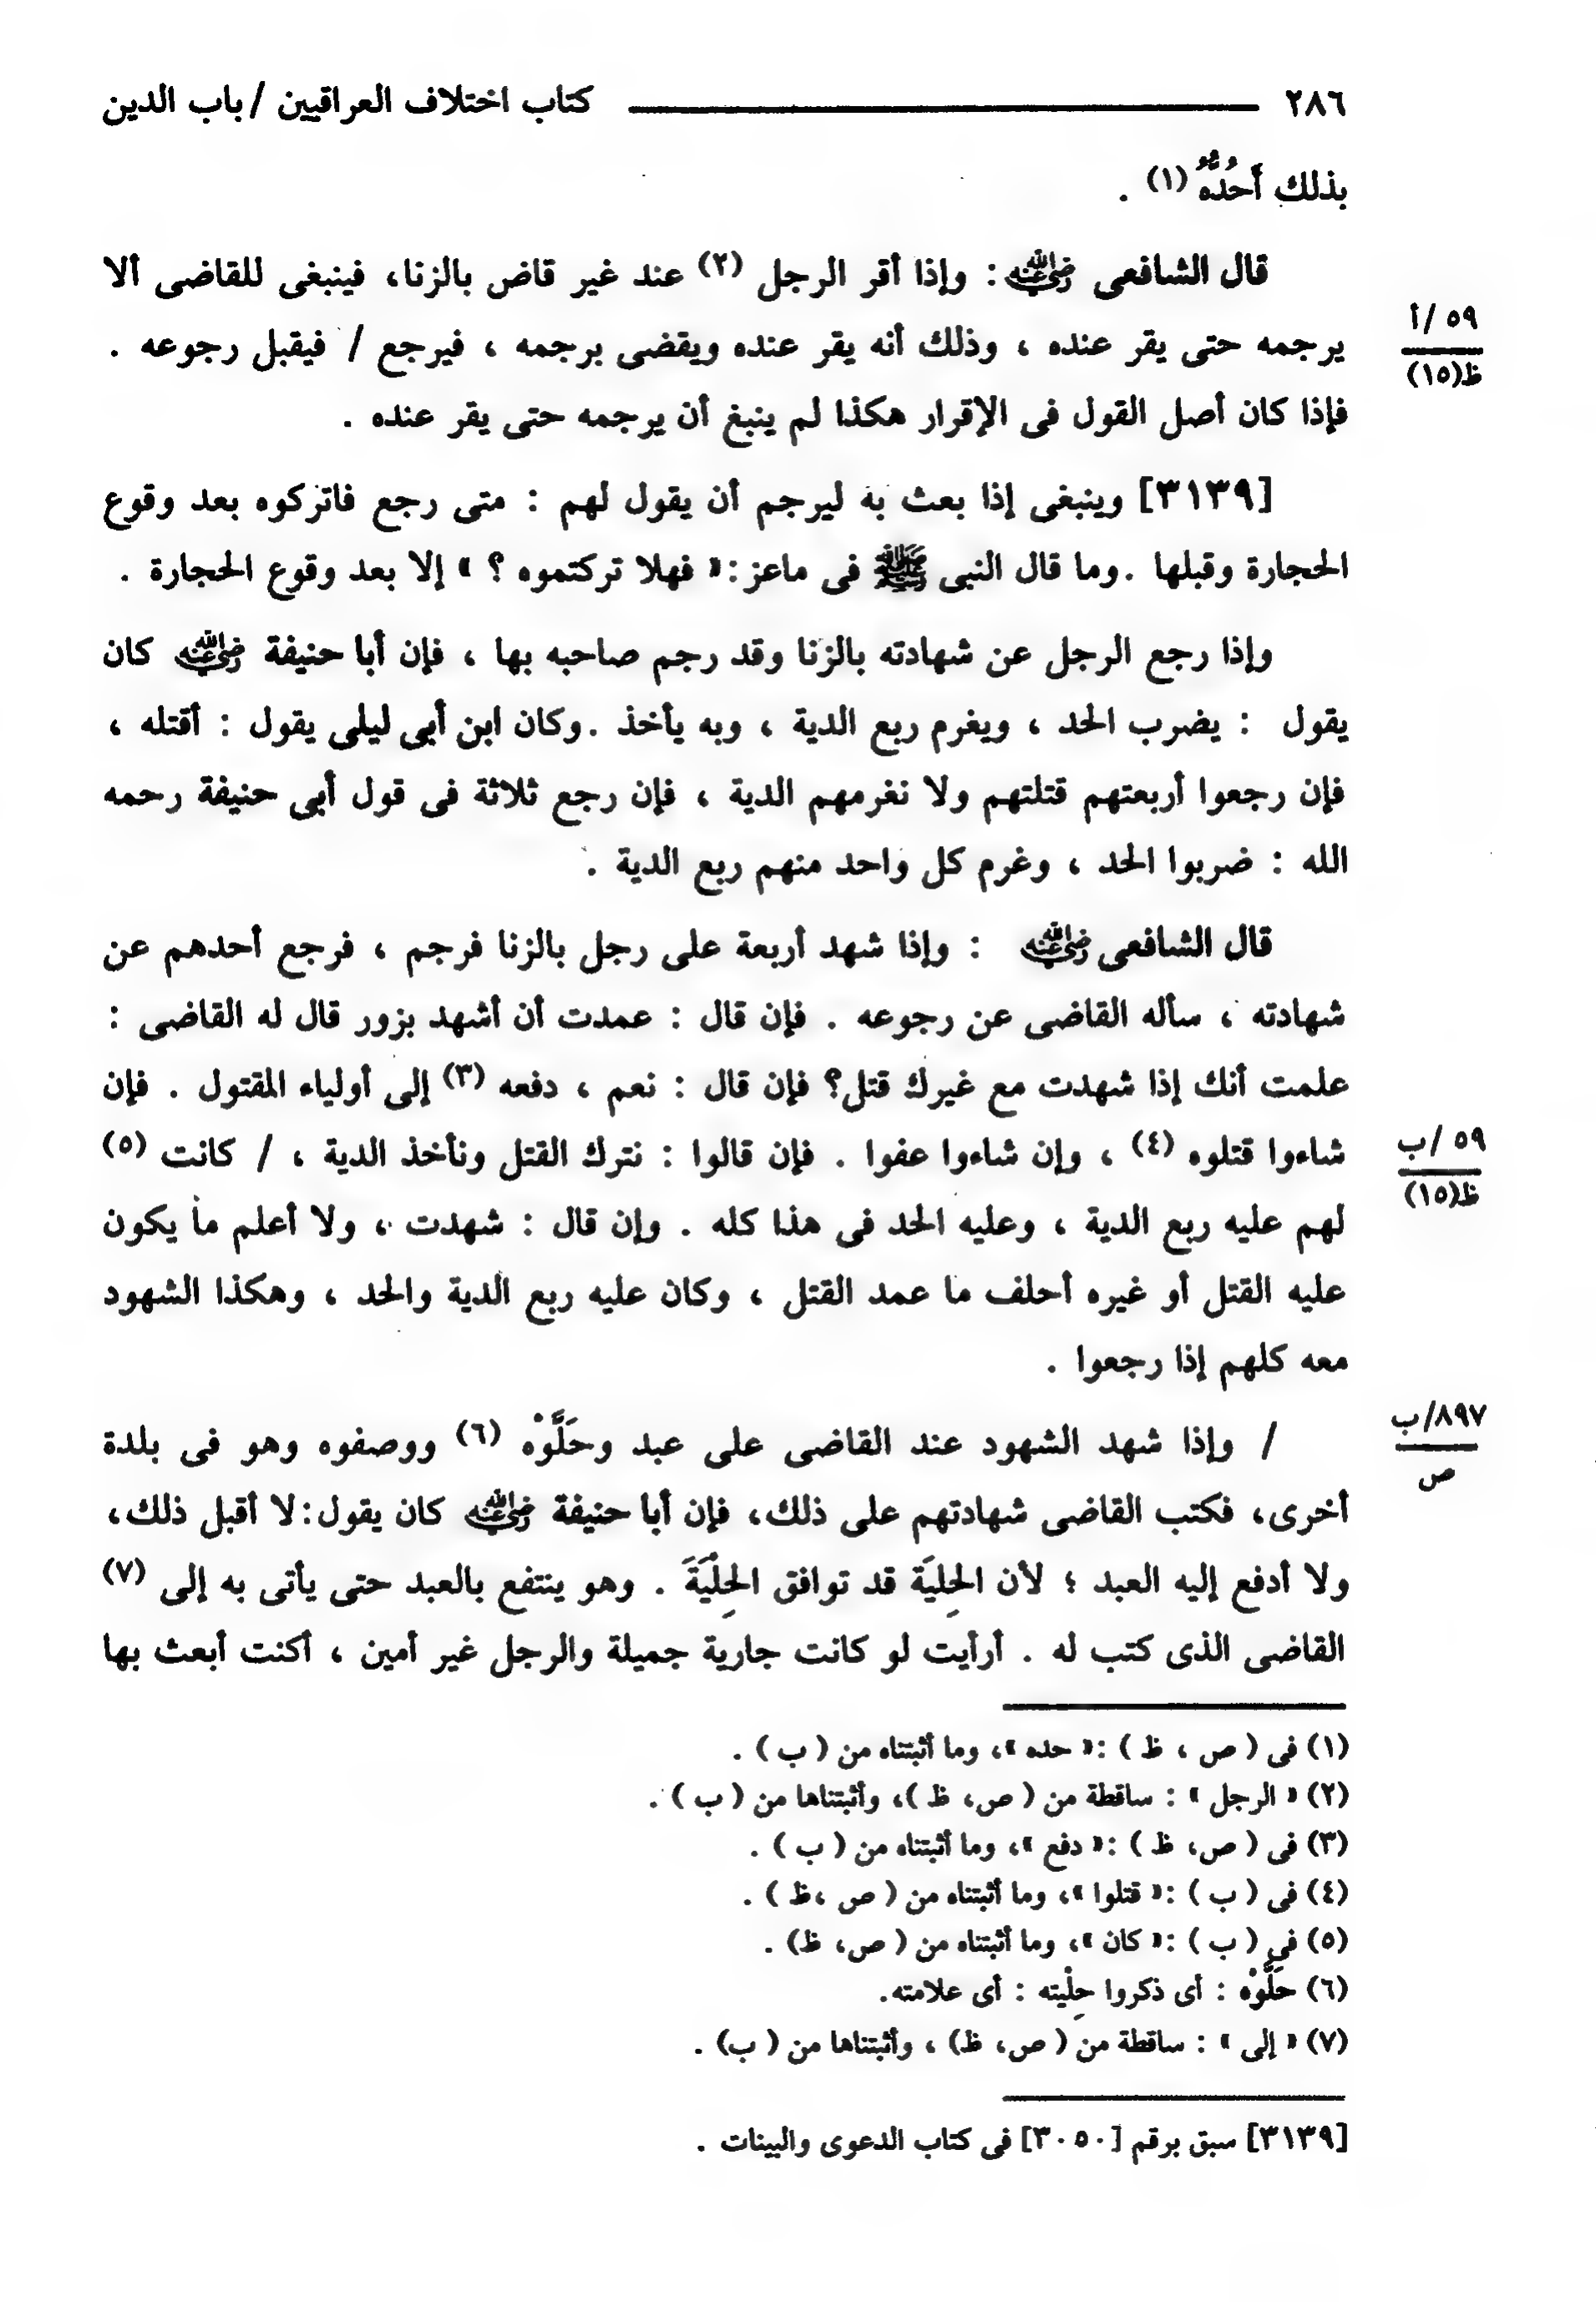 ٢٨٦ كتاب اختلاف العراقيين / باب الدين
بذلك أَحُدُّهُ (١) .
قال الشافعى رضي الله عنه : وإذا أقر الرجل (٢) عند غير قاض بالزنا، فينبغى للقاضى ألا
يرجمه حتى يقر عنده ، وذلك أنه يقر عنده ويقضى برجمه ، فيرجع / فيقبل رجوعه .
٥٩ /أ
ظ(١٥)
فإذا كان أصل القول فى الإقرار هكذا لم ينبغ أن يرجمه حتى يقر عنده .
[٣١٣٩] وينبغى إذا بعث به ليرجم أن يقول لهم : متى رجع فاتركوه بعد وقوع
الحجارة وقبلها .وما قال النبى ﷺ فى ماعز :« فهلا تركتموه ؟ » إلا بعد وقوع الحجارة .
وإذا رجع الرجل عن شهادته بالزنا وقد رجم صاحبه بها ، فإن أبا حنيفة رضي الله عنه كان
يقول : يضرب الحد ، ويغرم ربع الدية ، وبه يأخذ .وكان ابن أبى ليلى يقول : أقتله ،
فإن رجعوا أربعتهم قتلتهم ولا نغرمهم الدية ، فإن رجع ثلاثة فى قول أبى حنيفة رحمه
الله : ضربوا الحد ، وغرم كل واحد منهم ربع الدية .
قال الشافعى رضي الله عنه : وإذا شهد أربعة على رجل بالزنا فرجم ، فرجع أحدهم عن
شهادته ، سأله القاضى عن رجوعه . فإن قال : عمدت أن أشهد بزور قال له القاضى :
علمت أنك إذا شهدت مع غيرك قتل؟ فإن قال : نعم ، دفعه (٣) إلى أولياء المقتول . فإن
شاءوا قتلوه (٤) ، وإن شاءوا عفوا . فإن قالوا : نترك القتل ونأخذ الدية ، / كانت (٥)
٥٩ /ب
ظ(١٥)
لهم عليه ربع الدية ، وعليه الحد فى هذا كله . وإن قال : شهدت ، ولا أعلم ما يكون
عليه القتل أو غيره أحلف ما عمد القتل ، وكان عليه ربع الدية والحد ، وهكذا الشهود
معه كلهم إذا رجعوا .
/ وإذا شهد الشهود عند القاضى على عبد وحَلَّوْه (٦) ووصفوه وهو فى بلدة
٨٩٧/ب
ص
أخرى، فكتب القاضى شهادتهم على ذلك، فإن أبا حنيفة رضي الله عنه كان يقول:لا أقبل ذلك،
ولا أدفع إليه العبد ؛ لأن الحِليَة قد توافق الحِلْيَةَ . وهو ينتفع بالعبد حتى يأتى به إلى (٧)
القاضى الذى كتب له . أرأيت لو كانت جارية جميلة والرجل غير أمين ، أكنت أبعث بها
(١) فى ( ص ، ظ ) :« حده »، وما أثبتناه من ( ب ) .
(٢) « الرجل » : ساقطة من ( ص، ظ )، وأثبتناها من ( ب ) .
(٣) فى ( ص، ظ ) :« دفع »، وما أثبتناه من ( ب ) .
(٤) فى ( ب ) :« قتلوا »، وما أثبتناه من ( ص ،ظ ) .
(٥) فى ( ب ) :« كان »، وما أثبتناه من ( ص، ظ) .
(٦) حَلَّوْه : أى ذكروا حِلْيته : أى علامته.
(٧) « إلى » : ساقطة من ( ص، ظ) ، وأثبتناها من ( ب) .
[٣١٣٩] سبق برقم [٣٠٥٠] فى كتاب الدعوى والبينات .